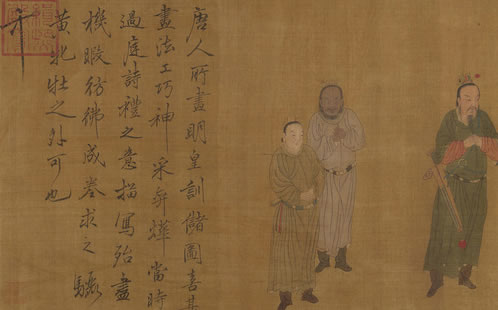 唐人所畫明皇訓儲圖喜其
畫法工巧神采奕燁當時
過庭詩禮之意描寫殆盡
機暇彷彿成卷求之驪
黃牝牡之外可也